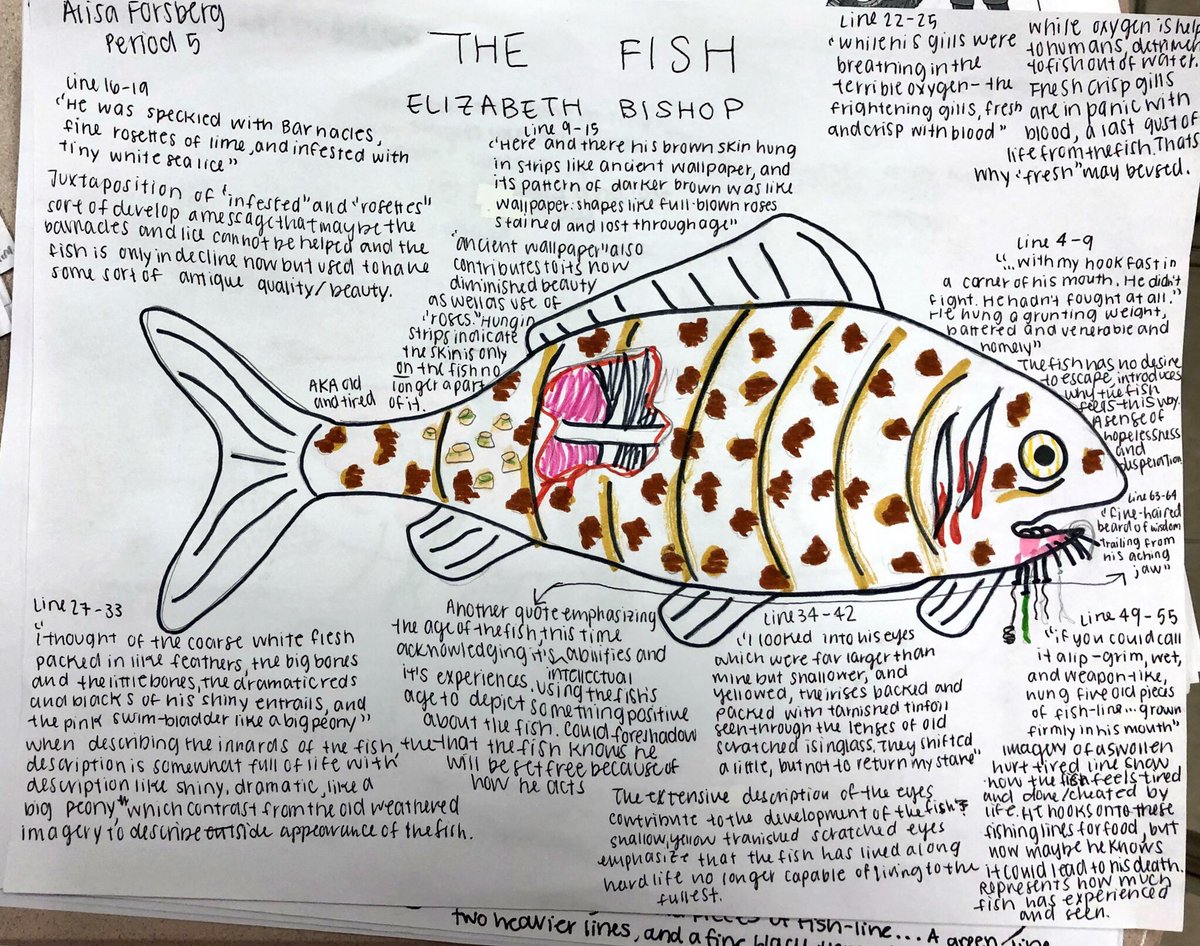 Alisa Forsberg
Period 5
THE FISH
ELIZABETH BISHOP
Line 16-19
"He was speckled with Barnacles,
fine rosettes of lime, and infested with
tiny white sea lice"
Juxtaposition of "infested" and "rosettes"
sort of develop a message that maybe the
barnacles and lice cannot be helped and the
fish is only in decline now but used to have
some sort of antique quality/beauty.
Line 9-15
"Here and there his brown skin hung
in strips like ancient wallpaper, and
its pattern of darker brown was like
wallpaper: shapes like full-blown roses
stained and lost through age"
"ancient wallpaper" also
contributes to its now
diminished beauty
as well as use of
"roses." Hung in
strips indicate
the skin is only
on the fish no
longer a part
of it.
AKA old
and tired
Line 22-25
"while his gills were
breathing in the
terrible oxygen- the
frightening gills, fresh
and crisp with blood"
while oxygen is help
to humans, detrimen
to fish out of water.
Fresh crisp gills
are in panic with
blood, a last gust of
life from the fish. Thats
why "fresh" may be used.
Line 4-9
"... with my hook fast in
a corner of his mouth. He didn't
fight. He hadn't fought at all."
He hung a grunting weight,
battered and venerable and
homely"
The fish has no desire
to escape, introduces
why the fish
feels this way.
A sense of
hopelessness
and
desperation
Line 63-64
"fine-haired
beard of wisdom
trailing from
his aching
jaw"
Line 27-33
"i thought of the coarse white flesh
packed in like feathers, the big bones
and the little bones, the dramatic reds
and blacks of his shiny entrails, and
the pink swim-bladder like a big peony"
when describing the innards of the fish, the
description is somewhat full of life with
description like shiny, dramatic, like a
big peony" which contrast from the old weathered
imagery to describe outside appearance of the fish.
Another quote emphasizing
the age of the fish, this time
acknowledging it's intellectual abilities and
it's experiences. using the fish's
age to depict something positive
about the fish. Could foreshadow
that the fish knows he
will be set free because of
how he acts
Line 34-42
"I looked into his eyes
which were far larger than
mine but shallower, and
yellowed, the irises backed and
packed with tarnished tinfoil
seen through the lenses of old
scratched isinglass. They shifted
a little, but not to return my stare"
The extensive description of the eyes
contribute to the development of the fish's
shallow, yellow tranished scratched eyes
emphasize that the fish has lived a long
hard life no longer capable of living to the
fullest.
Line 49-55
"if you could call
it a lip-grim, wet,
and weapon-like,
hung five old pieces
of fish-line... grown
firmly in his mouth"
imagery of a swollen
hurt tired line show
how the fish feels tired
and done/cheated by
life. He hooks onto these
fishing lines for food, but
now maybe he knows
it could lead to his death.
Represents how much
fish has experienced
and seen.
pieces of fish-line... A green line
two heavier lines, and a fine black